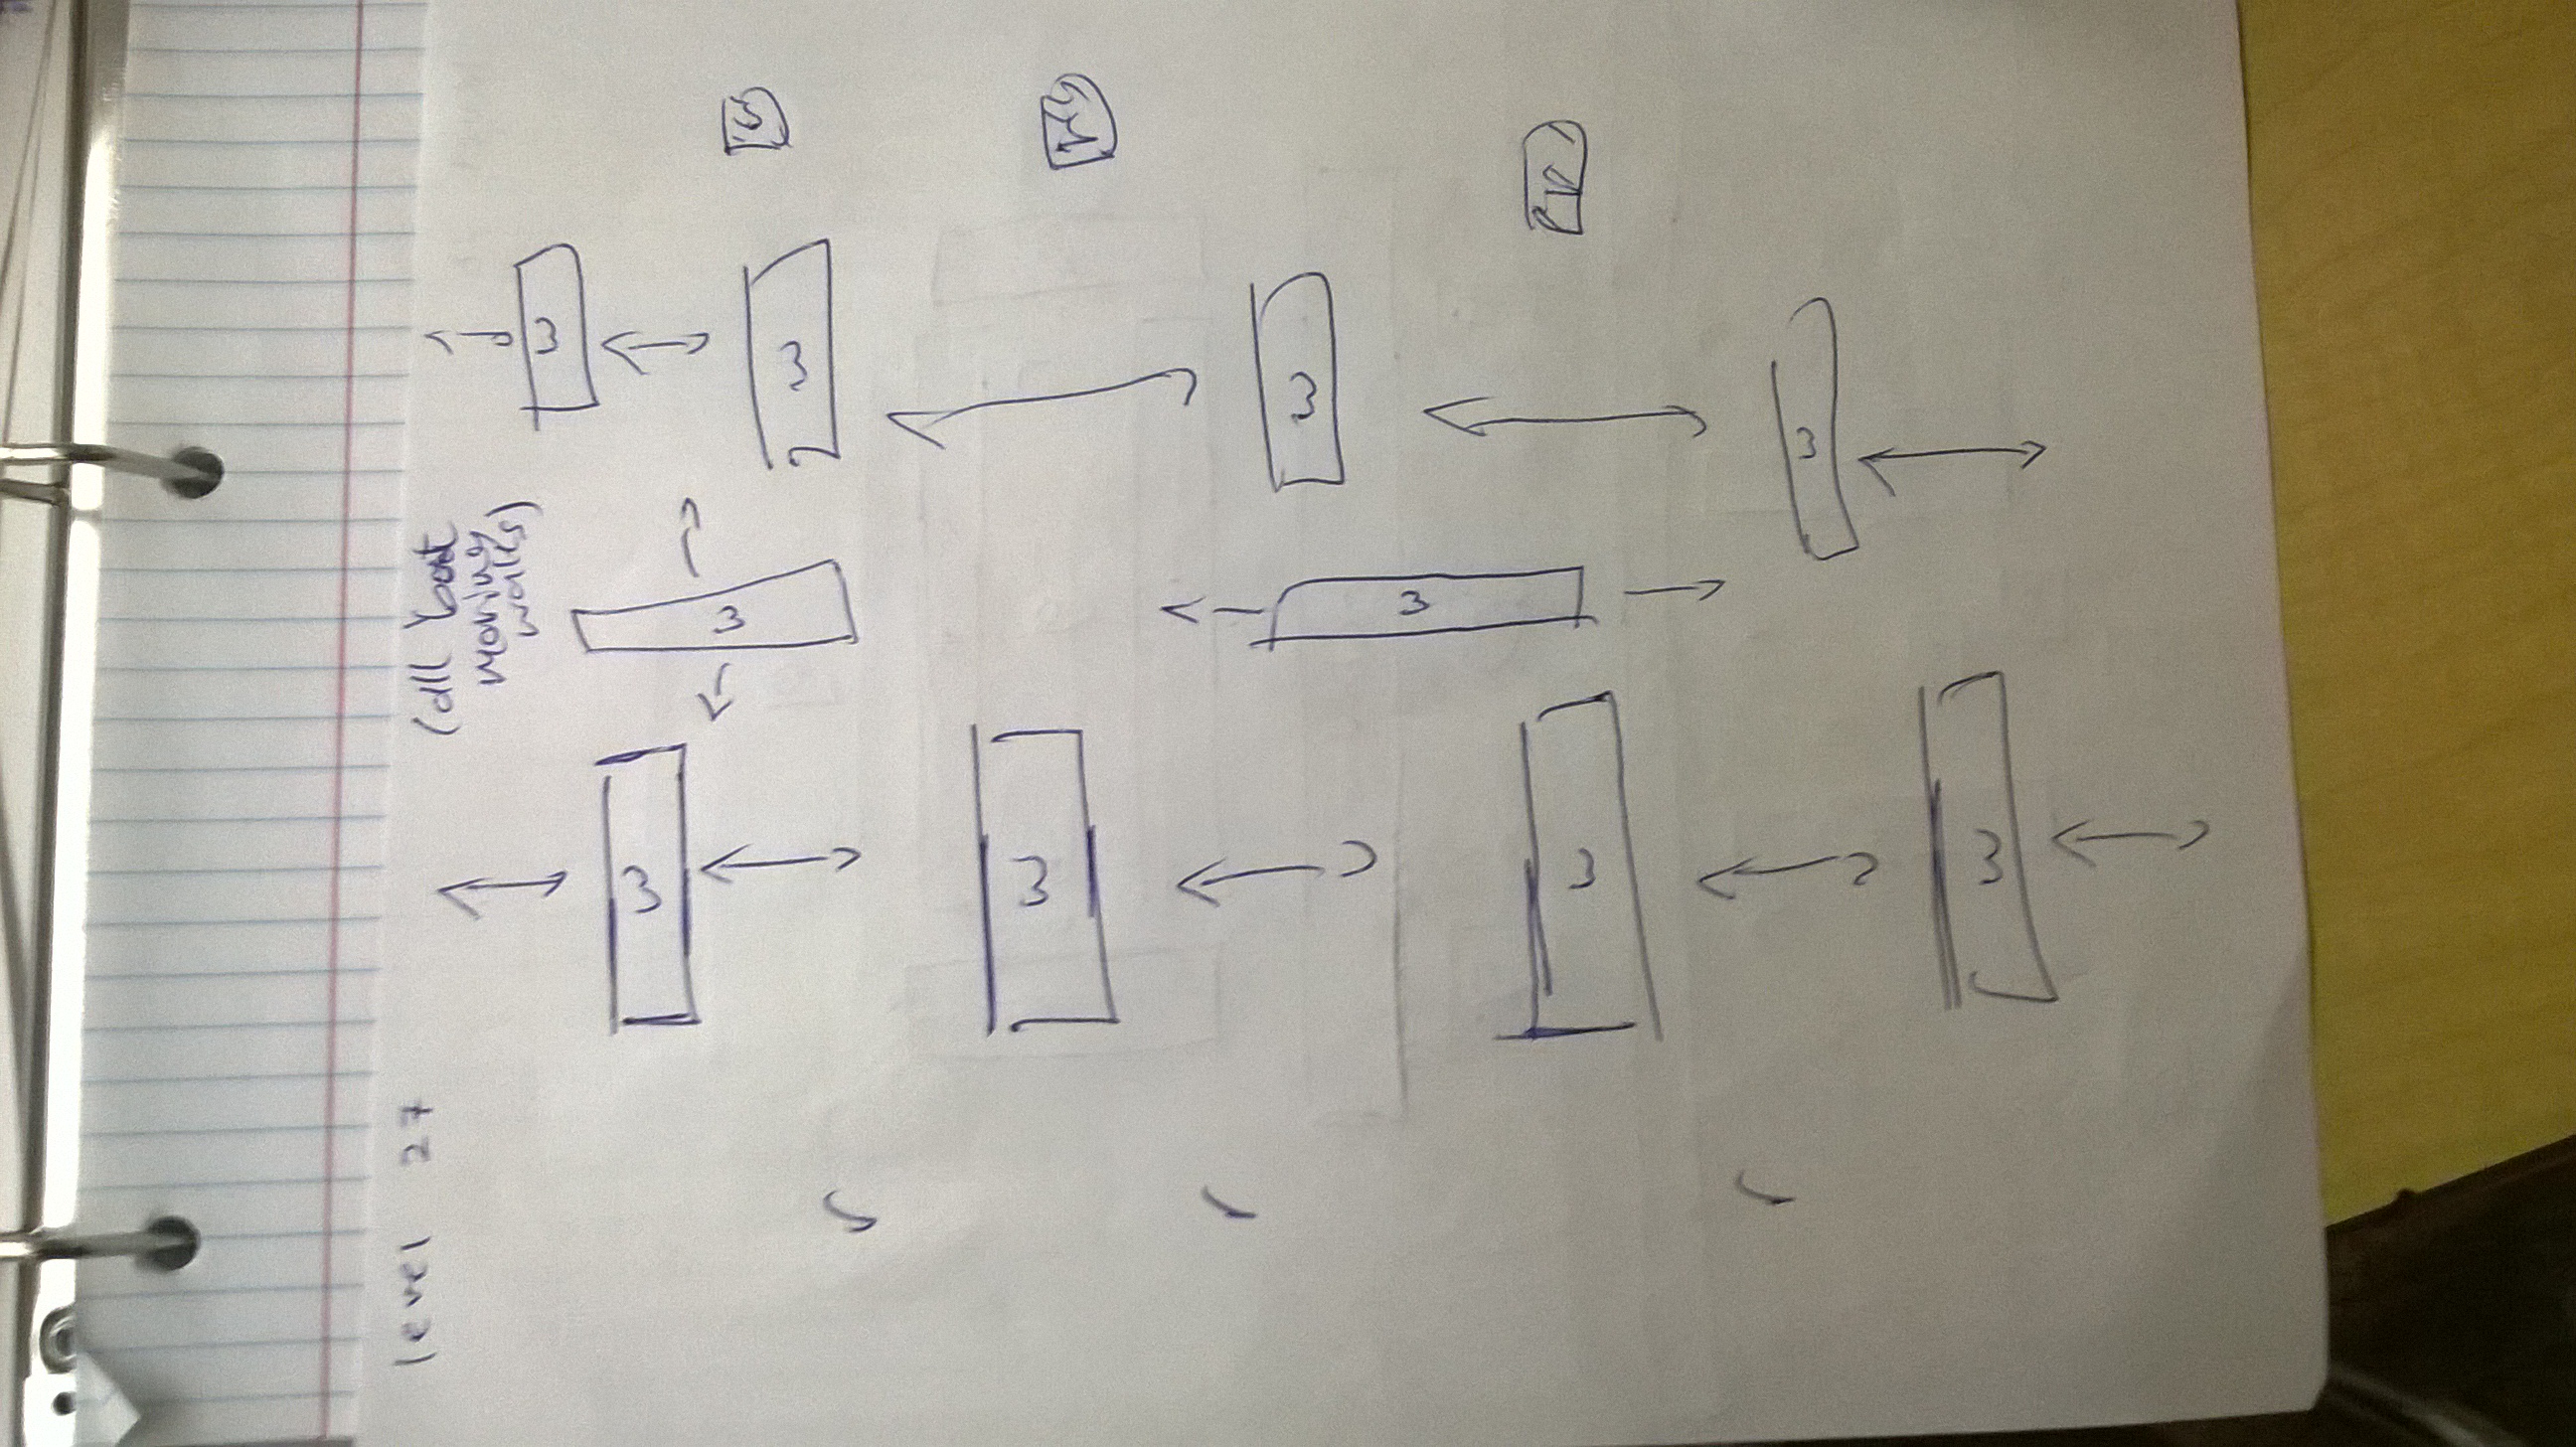 level 27
moving
walls)
3
3
3
3
3
3
3
3
3
3